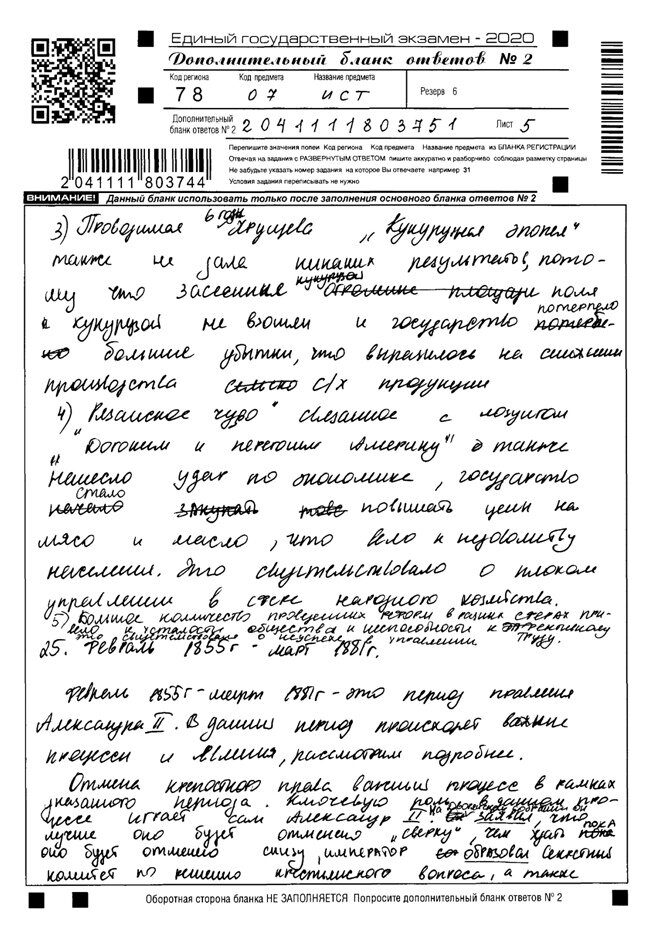 Единый государственный экзамен - 2020
Дополнительный бланк ответов № 2
Код региона Код предмета Название предмета
78 07 ИСТ Резерв 6
Дополнительный бланк ответов № 2 2041111803751 Лист 5
Перепишите значения полей Код региона Код предмета Название предмета из БЛАНКА РЕГИСТРАЦИИ
Отвечая на задания с РАЗВЕРНУТЫМ ОТВЕТОМ пишите аккуратно и разборчиво соблюдая разметку страницы
Не забудьте указать номер задания на которое Вы отвечаете например 31
Условия задания переписывать не нужно
2 041111 803744
ВНИМАНИЕ! Данный бланк использовать только после заполнения основного бланка ответов № 2
3) Проводимая в годы Хрущева „Кукурузная эпопея"
также не дала никаких результатов, пото-
му что засеянные кукурузой огромные площади поля
кукурузой не взошли и государство потерпело
большие убытки, что выразилось на снижении
производства сельско с/х продукции
4) „Рязанское чудо" связанное с лозунгом
„Догоним и перегоним Америку" также
нанесло удар по экономике, государство
стало
начало закупать повышать цены на
мясо и масло, что вело к недовольству
населения. Это свидетельствовало о плохом
управлении в сфере народного хозяйства.
5) Большое количество проведенных реформ в разных сферах при-
вело к усталости общества и неспособности к эффективному труду.
это свидетельствовало о неуспехе в управлении
25. Февраль 1855г - март 1881г.
Февраль 1855г - март 1881г - это период правления
Александра II. В данный период происходят важные
процессы и явления, рассмотрим подробнее.
Отмена крепостного права важный процесс в рамках
указанного периода. Ключевую роль в данном про-
цессе играет сам Александр II. заявил, что
лучше оно будет отменено „сверху", чем ждать пока
оно будет отменено снизу, император образовал Секретный
комитет по решению крестьянского вопроса, а также
Оборотная сторона бланка НЕ ЗАПОЛНЯЕТСЯ Попросите дополнительный бланк ответов № 2